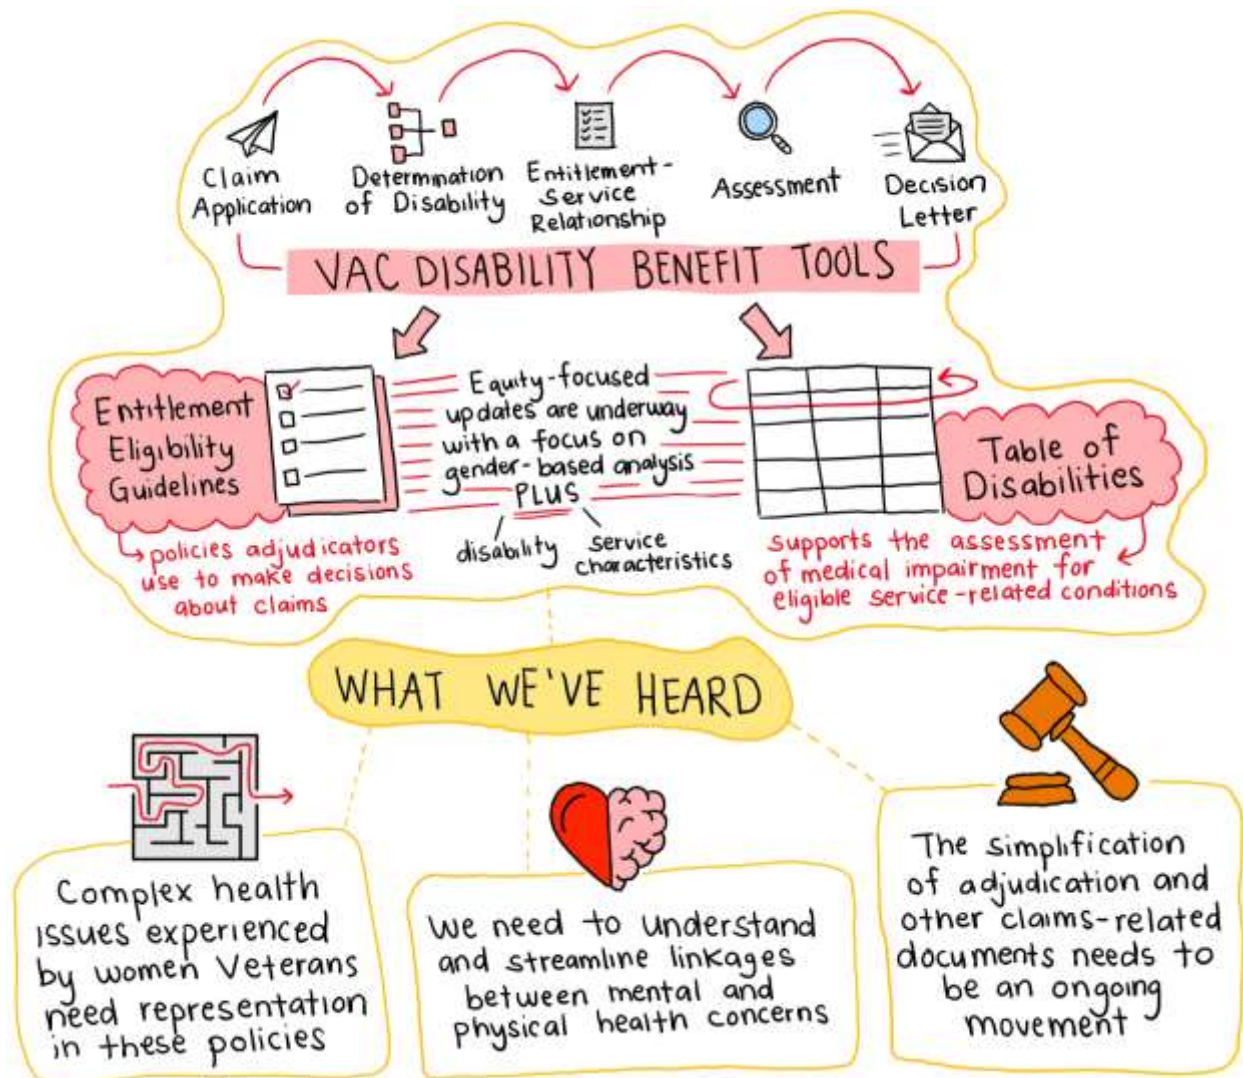 Claim
Application
Determination
of Disability
Entitlement-
Service
Relationship
Assessment
Decision
Letter
VAC DISABILITY BENEFIT TOOLS
Entitlement
Eligibility
Guidelines
policies adjudicators
use to make decisions
about claims
Equity-focused
updates are underway
with a focus on
gender-based analysis
PLUS
disability
service
characteristics
Table of
Disabilities
supports the assessment
of medical impairment for
eligible service-related conditions
WHAT WE'VE HEARD
Complex health
issues experienced
by women Veterans
need representation
in these policies
We need to understand
and streamline linkages
between mental and
physical health concerns
The simplification
of adjudication and
other claims-related
documents needs to
be an ongoing
movement